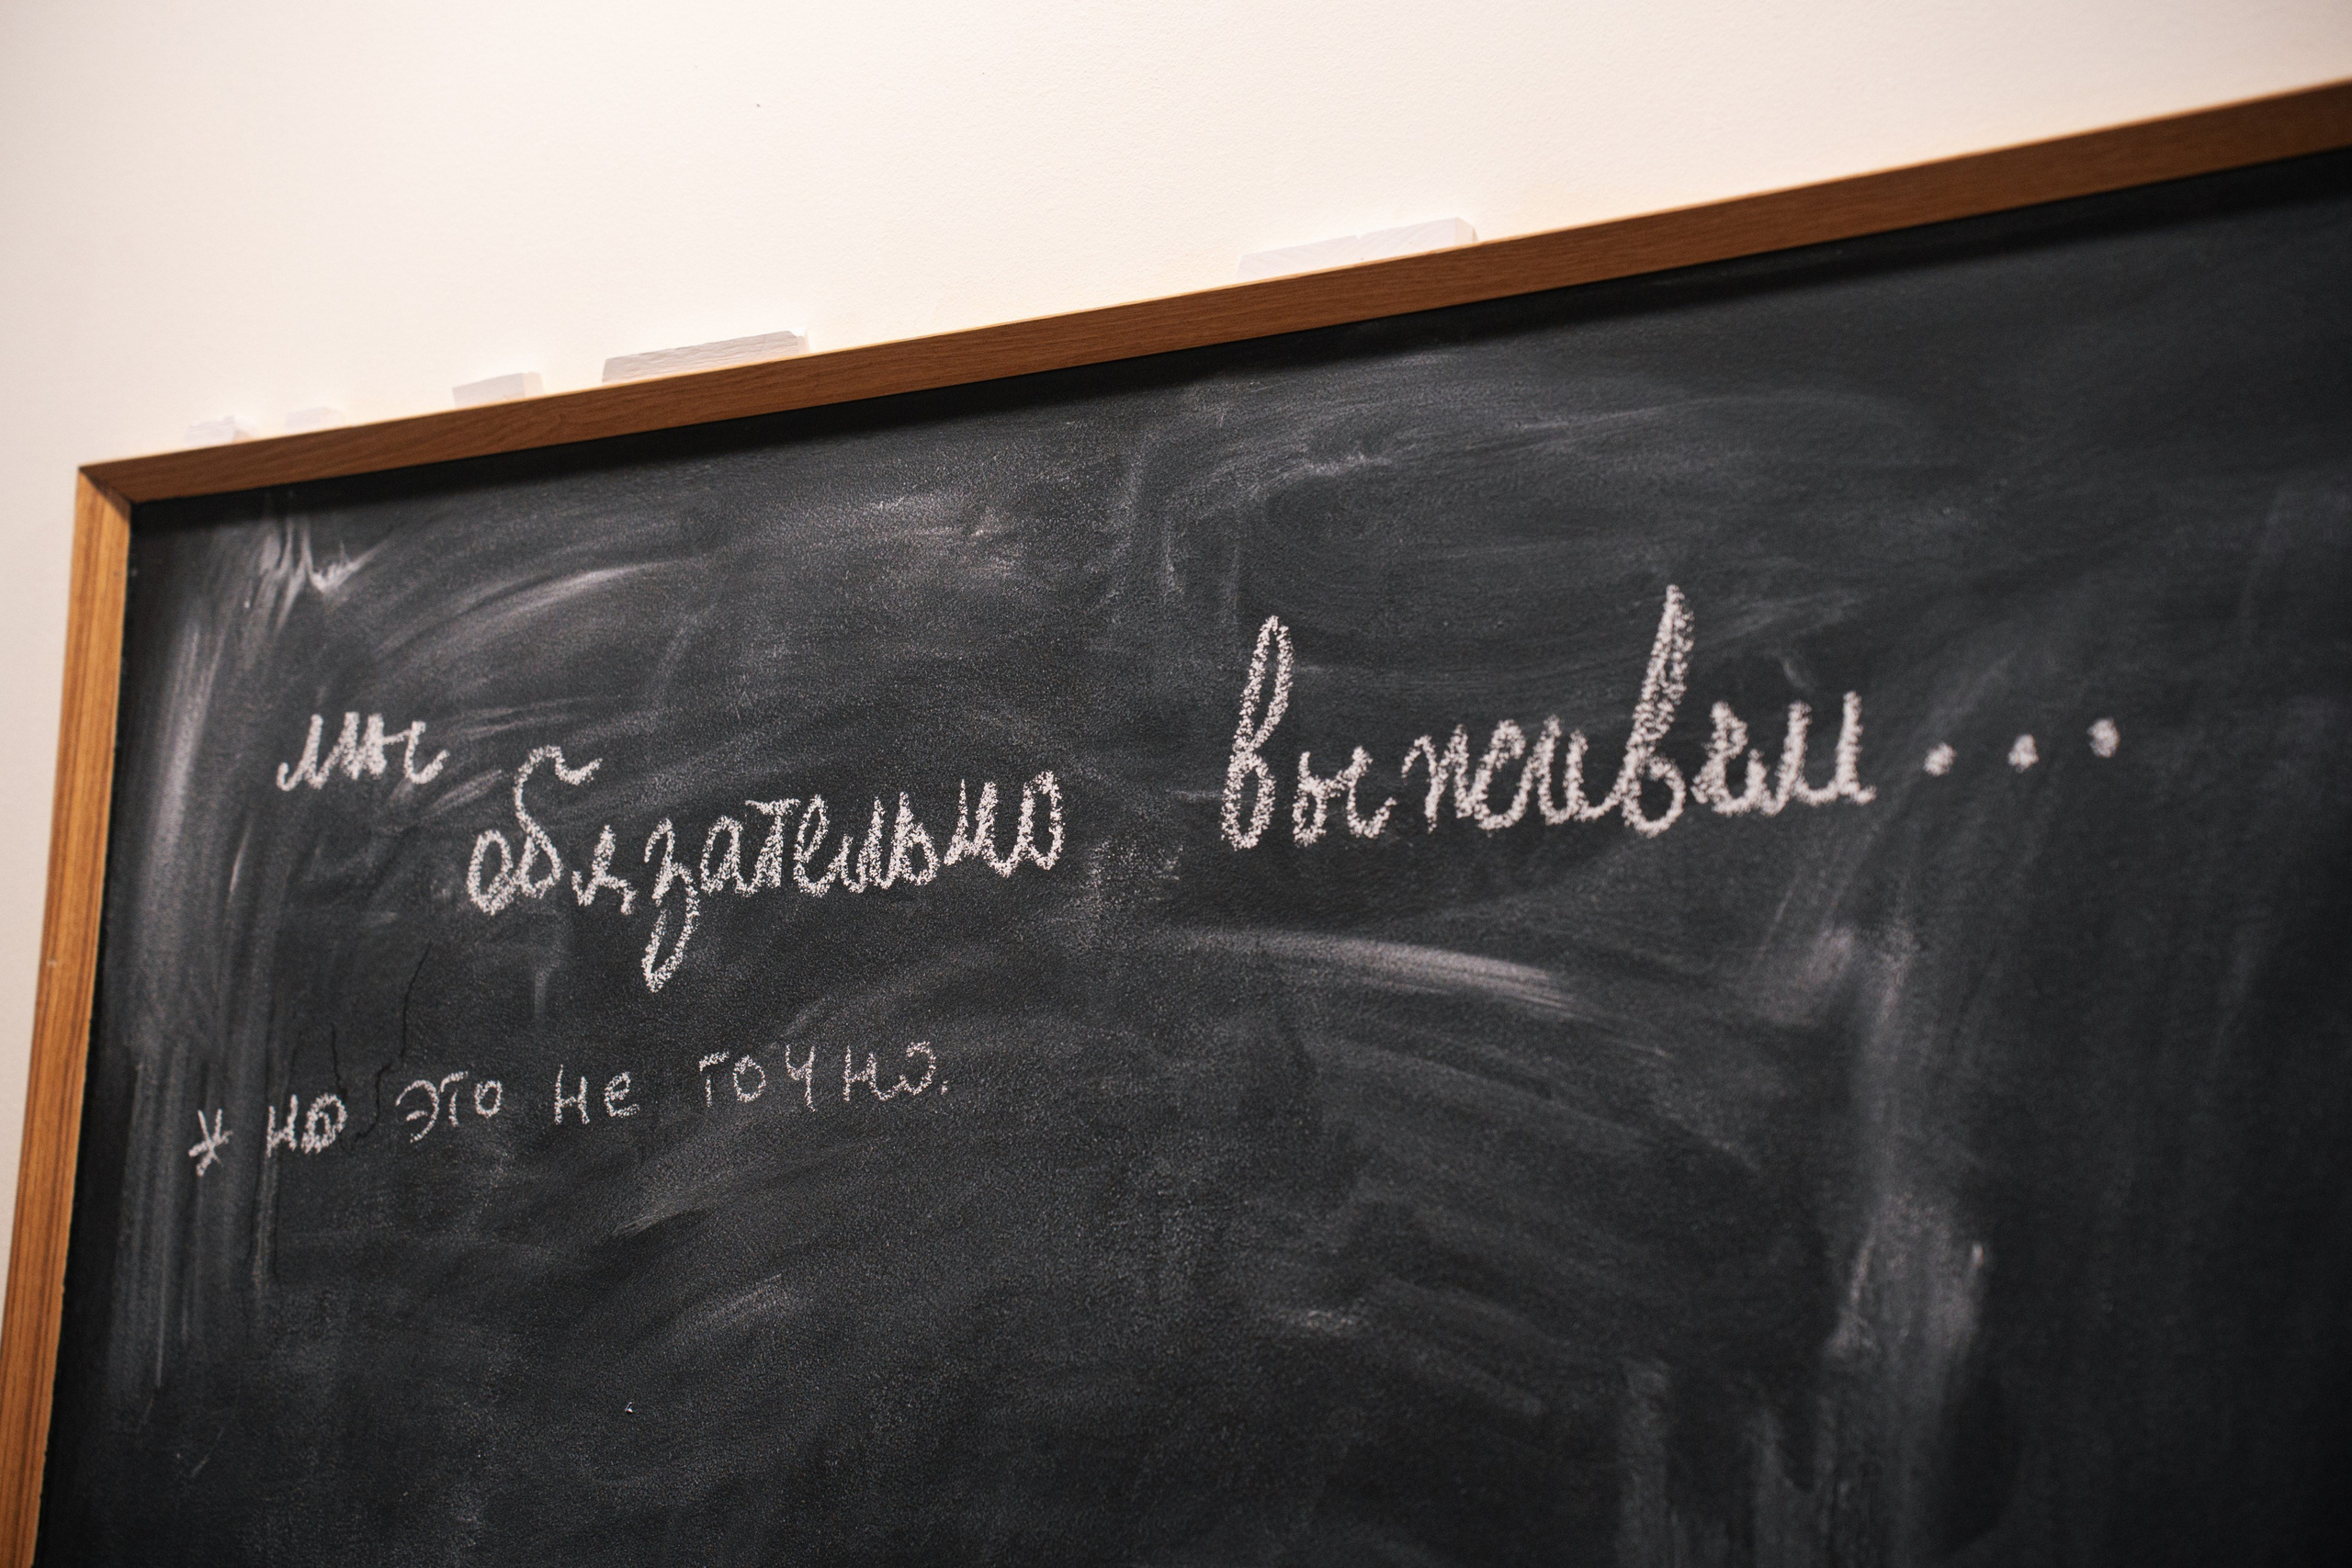 мы обязательно выживем...
* но это не точно.